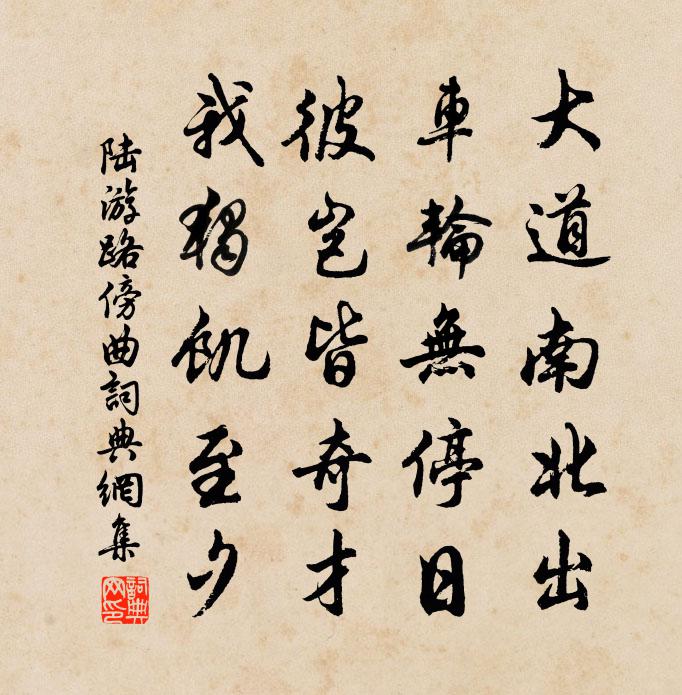 大道南北出
車輪無停日
彼豈皆奇才
我獨飢至夕
陆游路傍曲詞典網集
詞典網印